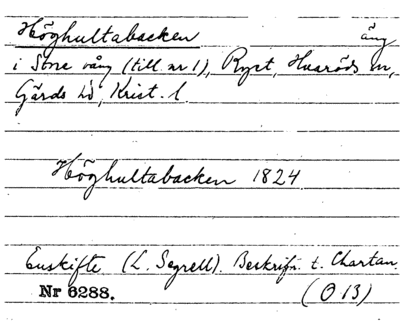 Höghultabacken äng
i Store vång (till nr 1), Ryet, Huaröds sn,
Gärds hd, Krist. l.
Höghultabacken 1824
Enskifte (L. Segrell). Beskrifn. t. Chartan.
Nr 6288. (Ö 13)